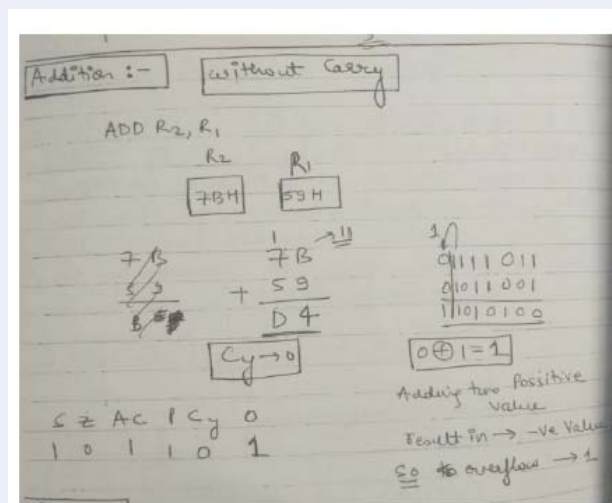 Addition :- without Carry
ADD R2, R1
R2 R1
7BH 59H
1
7B → 11
+ 59
D4
Cy → 0
1
01111011
01011001
11010100
0⊕1=1
Adding two Possitive
value
result in → -ve value
so overflow → 1
S Z AC P Cy O
1 0 1 1 0 1